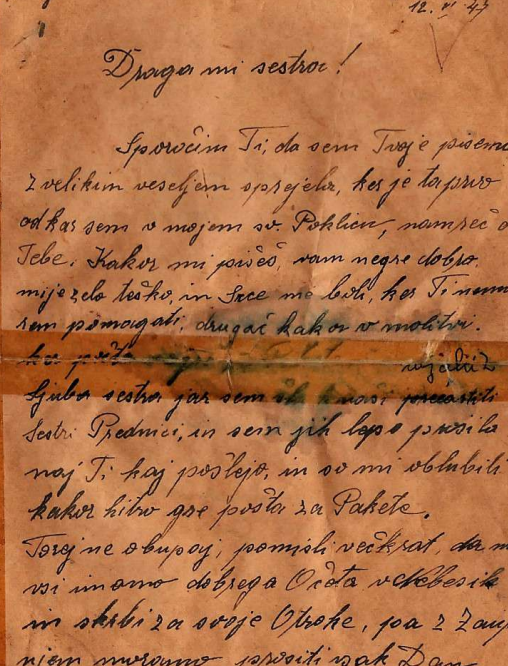 12. VI 47
Draga mi sestra!
Sporočim Ti, da sem Tvoje pismo
z velikim veseljem sprejela, ker je ta prvo
od kar sem v mojem sv. Poklicu, namreč o
Tebe. Kakor mi pišeš, vam negre dobro.
mije zelo teško, in Srce me boli, ker Ti nem
sem pomagati, drugač kakor v molitvi.
ko pošta
ljuba sestra jaz sem šla k naši prečastiti
Sestri Prednici, in sem jih lepo prosila
naj Ti kaj pošlejo, in so mi oblubili
kakor hitro gre pošta za Pakete.
Torej ne obupaj, pomisli večkrat, da m
vsi imamo dobrega Očeta v Nebesih
in skrbi za svoje Otroke, pa z Zaup
njem moramo prositi vsak Dan